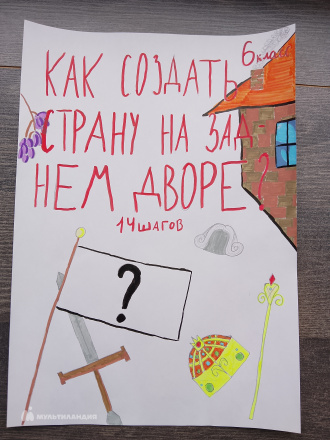 6 класс
КАК СОЗДАТЬ
СТРАНУ НА ЗАД
НЕМ ДВОРЕ?
14 ШАГОВ
?
МУЛЬТИЛАНДИЯ